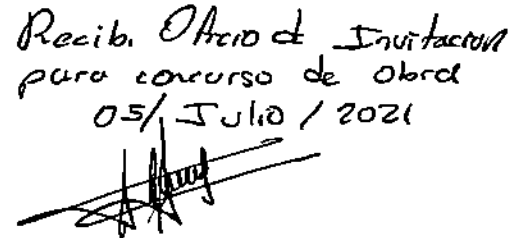 Recib. Oficio de Invitacion
para concurso de obra
05/Julio/2021